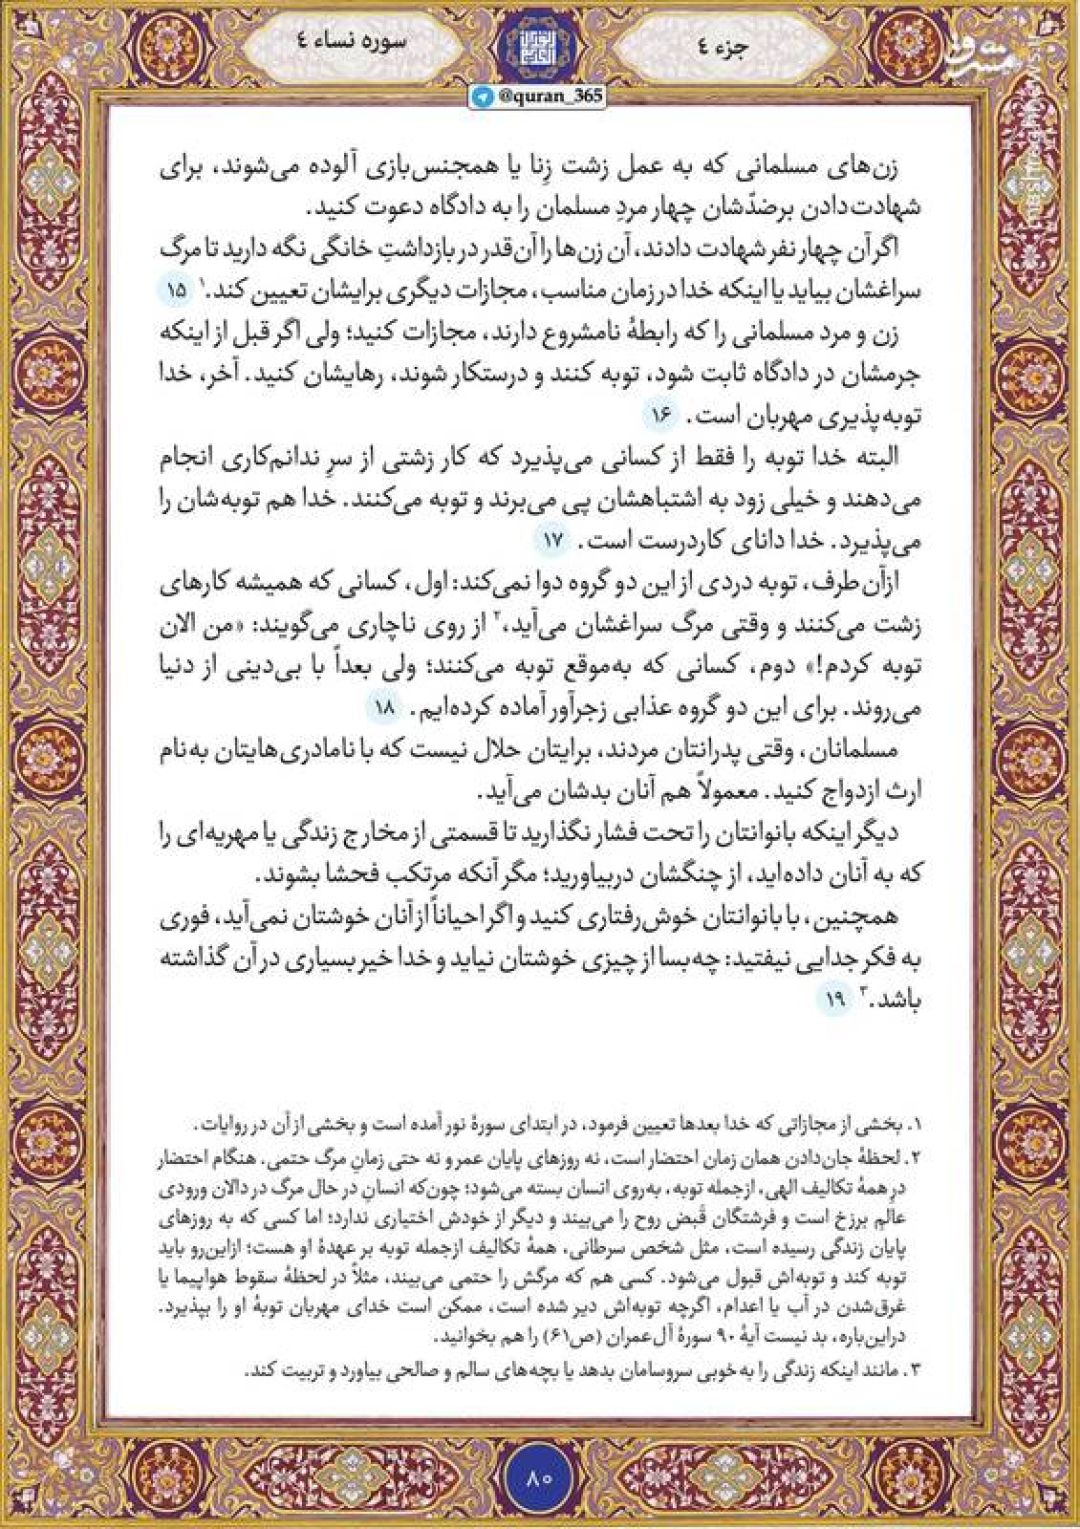 جزء ٤
سوره نساء ٤
@quran_365
مشرق
زن‌های مسلمانی که به عمل زشت زِنا یا همجنس‌بازی آلوده می‌شوند، برای
شهادت‌دادن برضدّشان چهار مردِ مسلمان را به دادگاه دعوت کنید.
اگر آن چهار نفر شهادت دادند، آن زن‌ها را آن‌قدر در بازداشتِ خانگی نگه دارید تا مرگ
سراغشان بیاید یا اینکه خدا در زمان مناسب، مجازات دیگری برایشان تعیین کند.۱ ۱۵
زن و مرد مسلمانی را که رابطهٔ نامشروع دارند، مجازات کنید؛ ولی اگر قبل از اینکه
جرمشان در دادگاه ثابت شود، توبه کنند و درستکار شوند، رهایشان کنید. آخر، خدا
توبه‌پذیری مهربان است. ۱۶
البته خدا توبه را فقط از کسانی می‌پذیرد که کار زشتی از سرِ ندانم‌کاری انجام
می‌دهند و خیلی زود به اشتباهشان پی می‌برند و توبه می‌کنند. خدا هم توبه‌شان را
می‌پذیرد. خدا دانای کاردرست است. ۱۷
ازآن‌طرف، توبه دردی از این دو گروه دوا نمی‌کند: اول، کسانی که همیشه کارهای
زشت می‌کنند و وقتی مرگ سراغشان می‌آید،۲ از روی ناچاری می‌گویند: «من الان
توبه کردم!» دوم، کسانی که به‌موقع توبه می‌کنند؛ ولی بعداً با بی‌دینی از دنیا
می‌روند. برای این دو گروه عذابی زجرآور آماده کرده‌ایم. ۱۸
مسلمانان، وقتی پدرانتان مردند، برایتان حلال نیست که با نامادری‌هایتان به‌نام
ارث ازدواج کنید. معمولاً هم آنان بدشان می‌آید.
دیگر اینکه بانوانتان را تحت فشار نگذارید تا قسمتی از مخارج زندگی یا مهریه‌ای را
که به آنان داده‌اید، از چنگشان دربیاورید؛ مگر آنکه مرتکب فحشا بشوند.
همچنین، با بانوانتان خوش‌رفتاری کنید و اگر احیاناً از آنان خوشتان نمی‌آید، فوری
به فکر جدایی نیفتید: چه‌بسا از چیزی خوشتان نیاید و خدا خیر بسیاری در آن گذاشته
باشد.۳ ۱۹
۱. بخشی از مجازاتی که خدا بعدها تعیین فرمود، در ابتدای سورهٔ نور آمده است و بخشی از آن در روایات.
۲. لحظهٔ جان‌دادن همان زمان احتضار است، نه روزهای پایان عمر و نه حتی زمانِ مرگ حتمی. هنگام احتضار
درِ همهٔ تکالیف الهی، ازجمله توبه، به‌روی انسان بسته می‌شود؛ چون‌که انسانِ در حال مرگ در دالان ورودی
عالَم برزخ است و فرشتگان قَبض روح را می‌بیند و دیگر از خودش اختیاری ندارد؛ اما کسی که به روزهای
پایان زندگی رسیده است، مثل شخص سرطانی، همهٔ تکالیف ازجمله توبه بر عهدهٔ او هست؛ ازاین‌رو باید
توبه کند و توبه‌اش قبول می‌شود. کسی هم که مرگش را حتمی می‌بیند، مثلاً در لحظهٔ سقوط هواپیما یا
غرق‌شدن در آب یا اعدام، اگرچه توبه‌اش دیر شده است، ممکن است خدای مهربان توبهٔ او را بپذیرد.
دراین‌باره، بد نیست آیهٔ ۹۰ سورهٔ آل‌عمران (ص۶۱) را هم بخوانید.
۳. مانند اینکه زندگی را به‌خوبی سروسامان بدهد یا بچه‌های سالم و صالحی بیاورد و تربیت کند.
۸۰